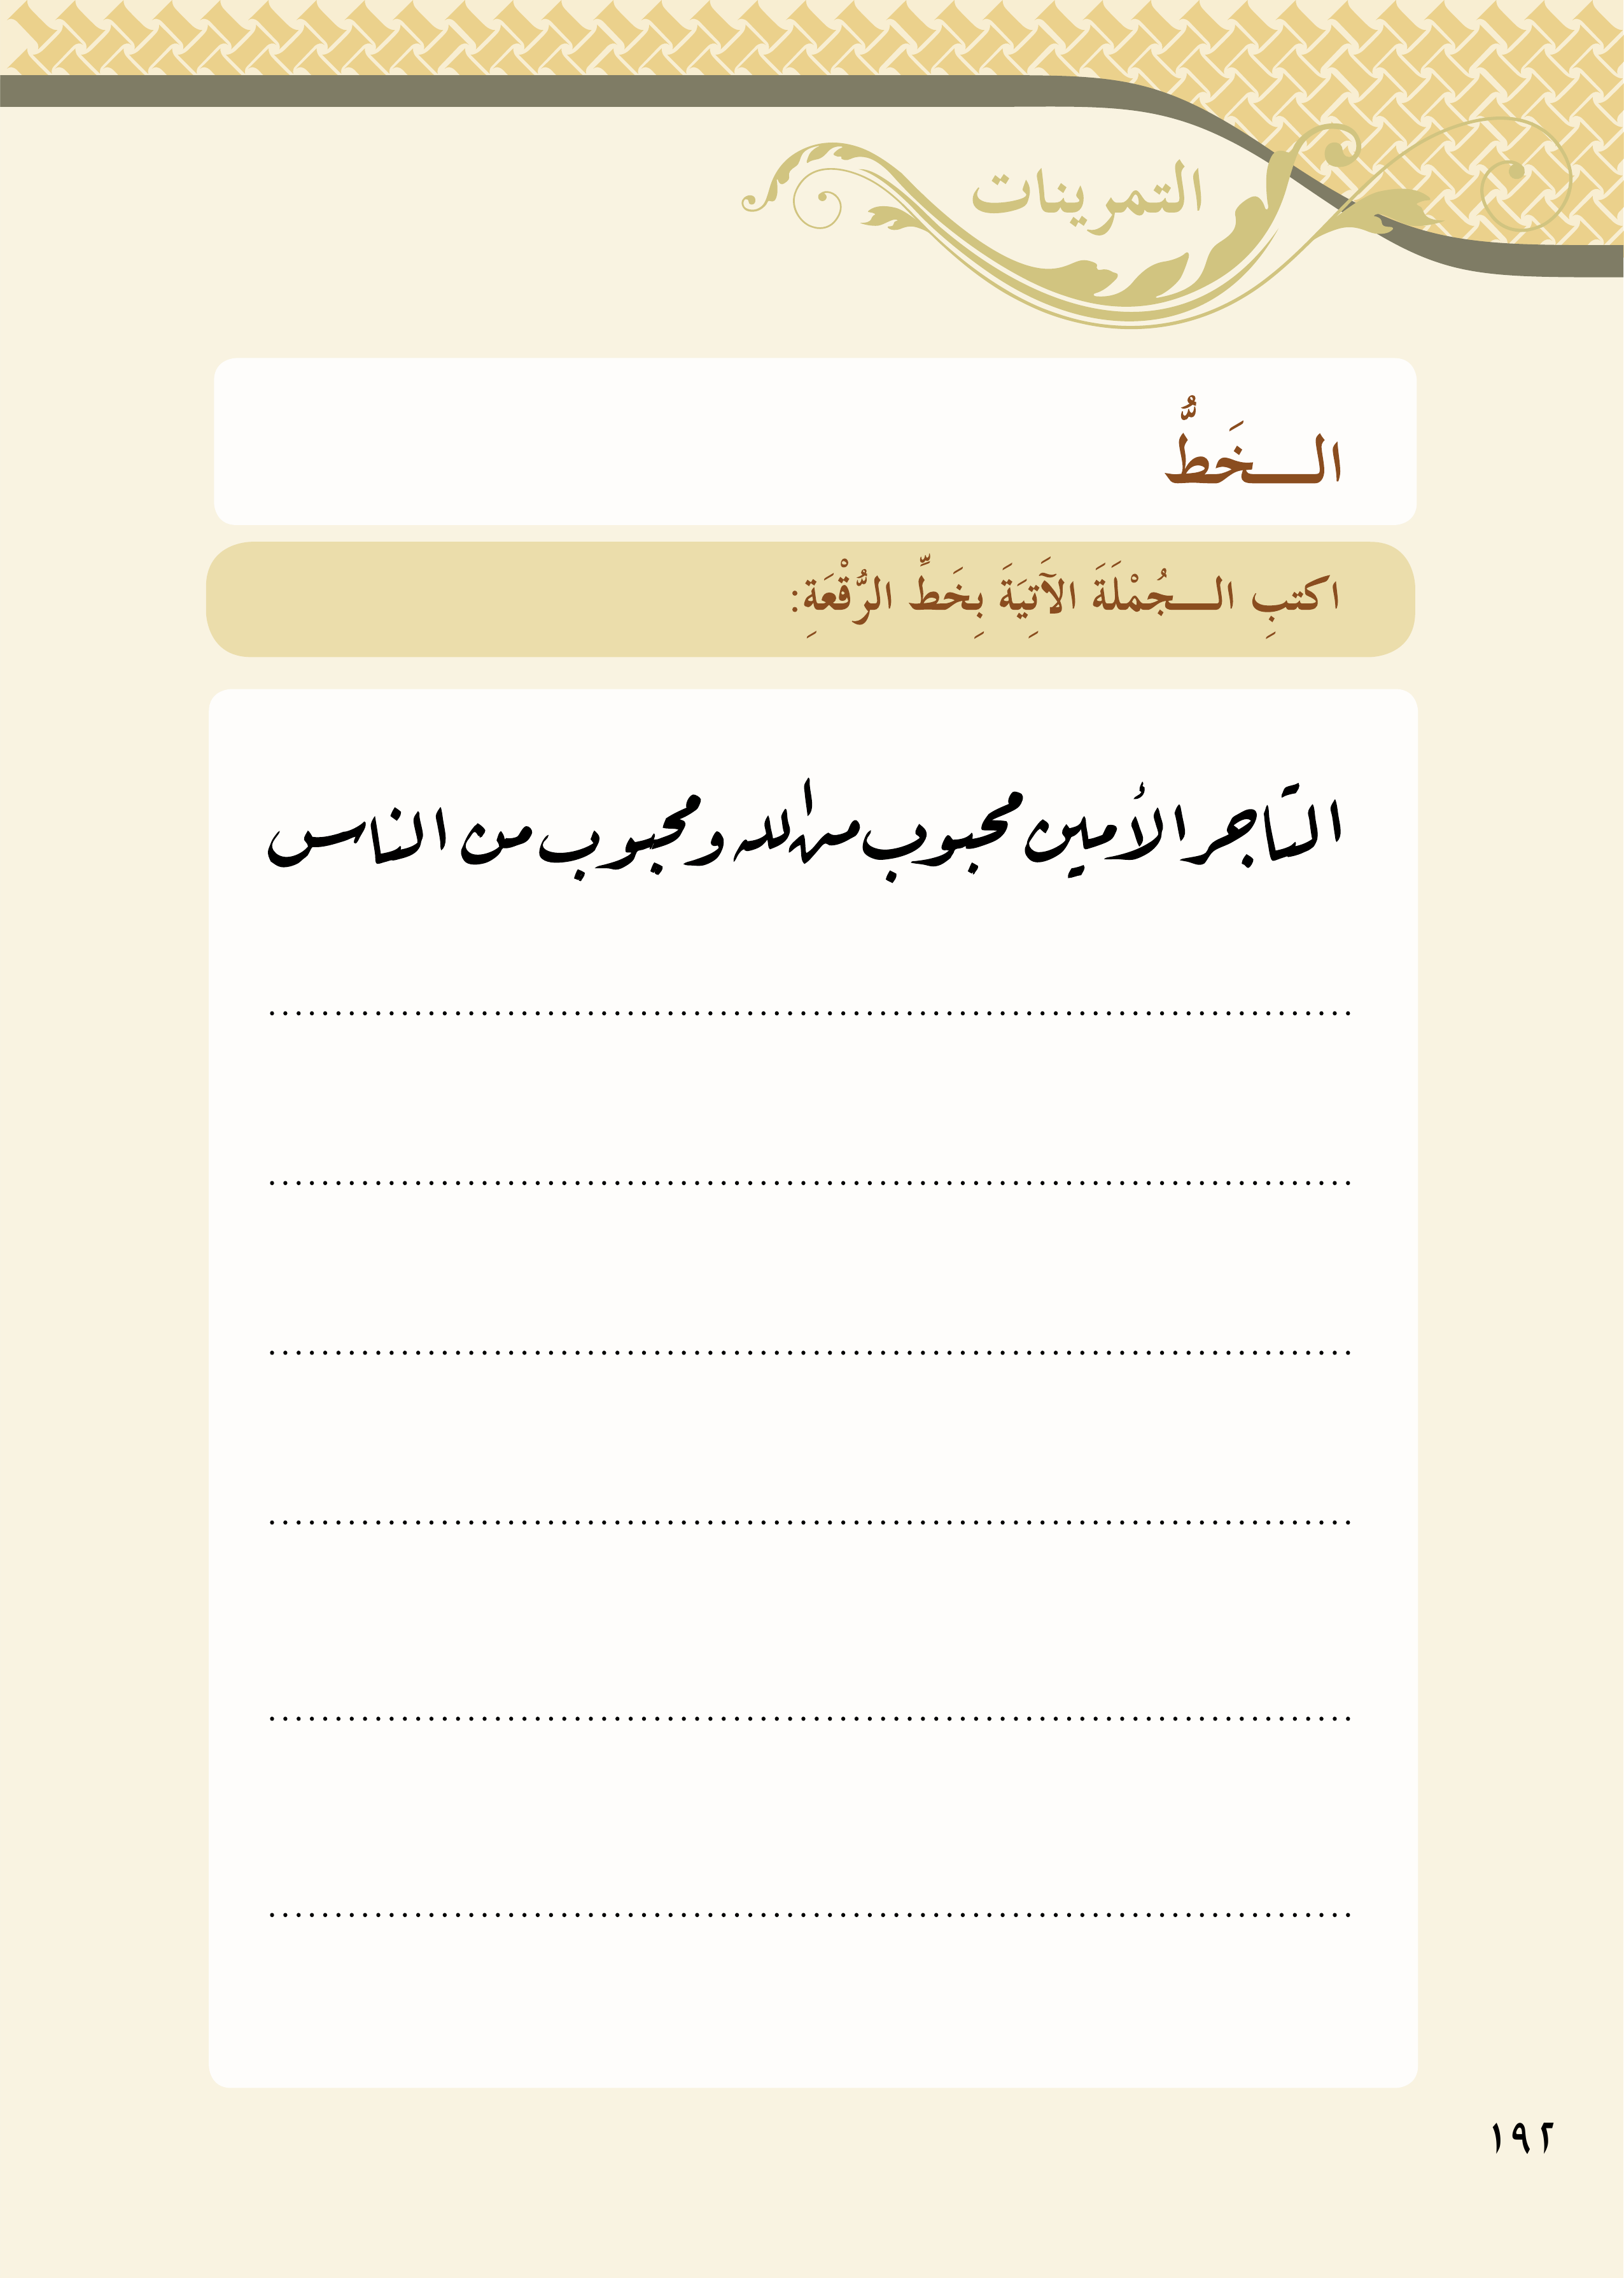 التمرينات
الـــخَطُّ
اكتبِ الـــجُمْلَةَ الآَتِيَةَ بِخَطِّ الرُّقْعَةِ:
التّاجر الأمين محبوب من الله ومحبوب من الناس
١٩٢